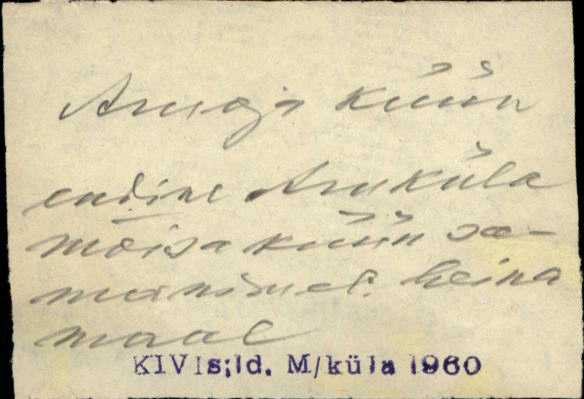 Aruoja küün
endine Aruküla
mõisa küün sa-
manimel. heina
maal
KIVIs;ld. M/küla 1960